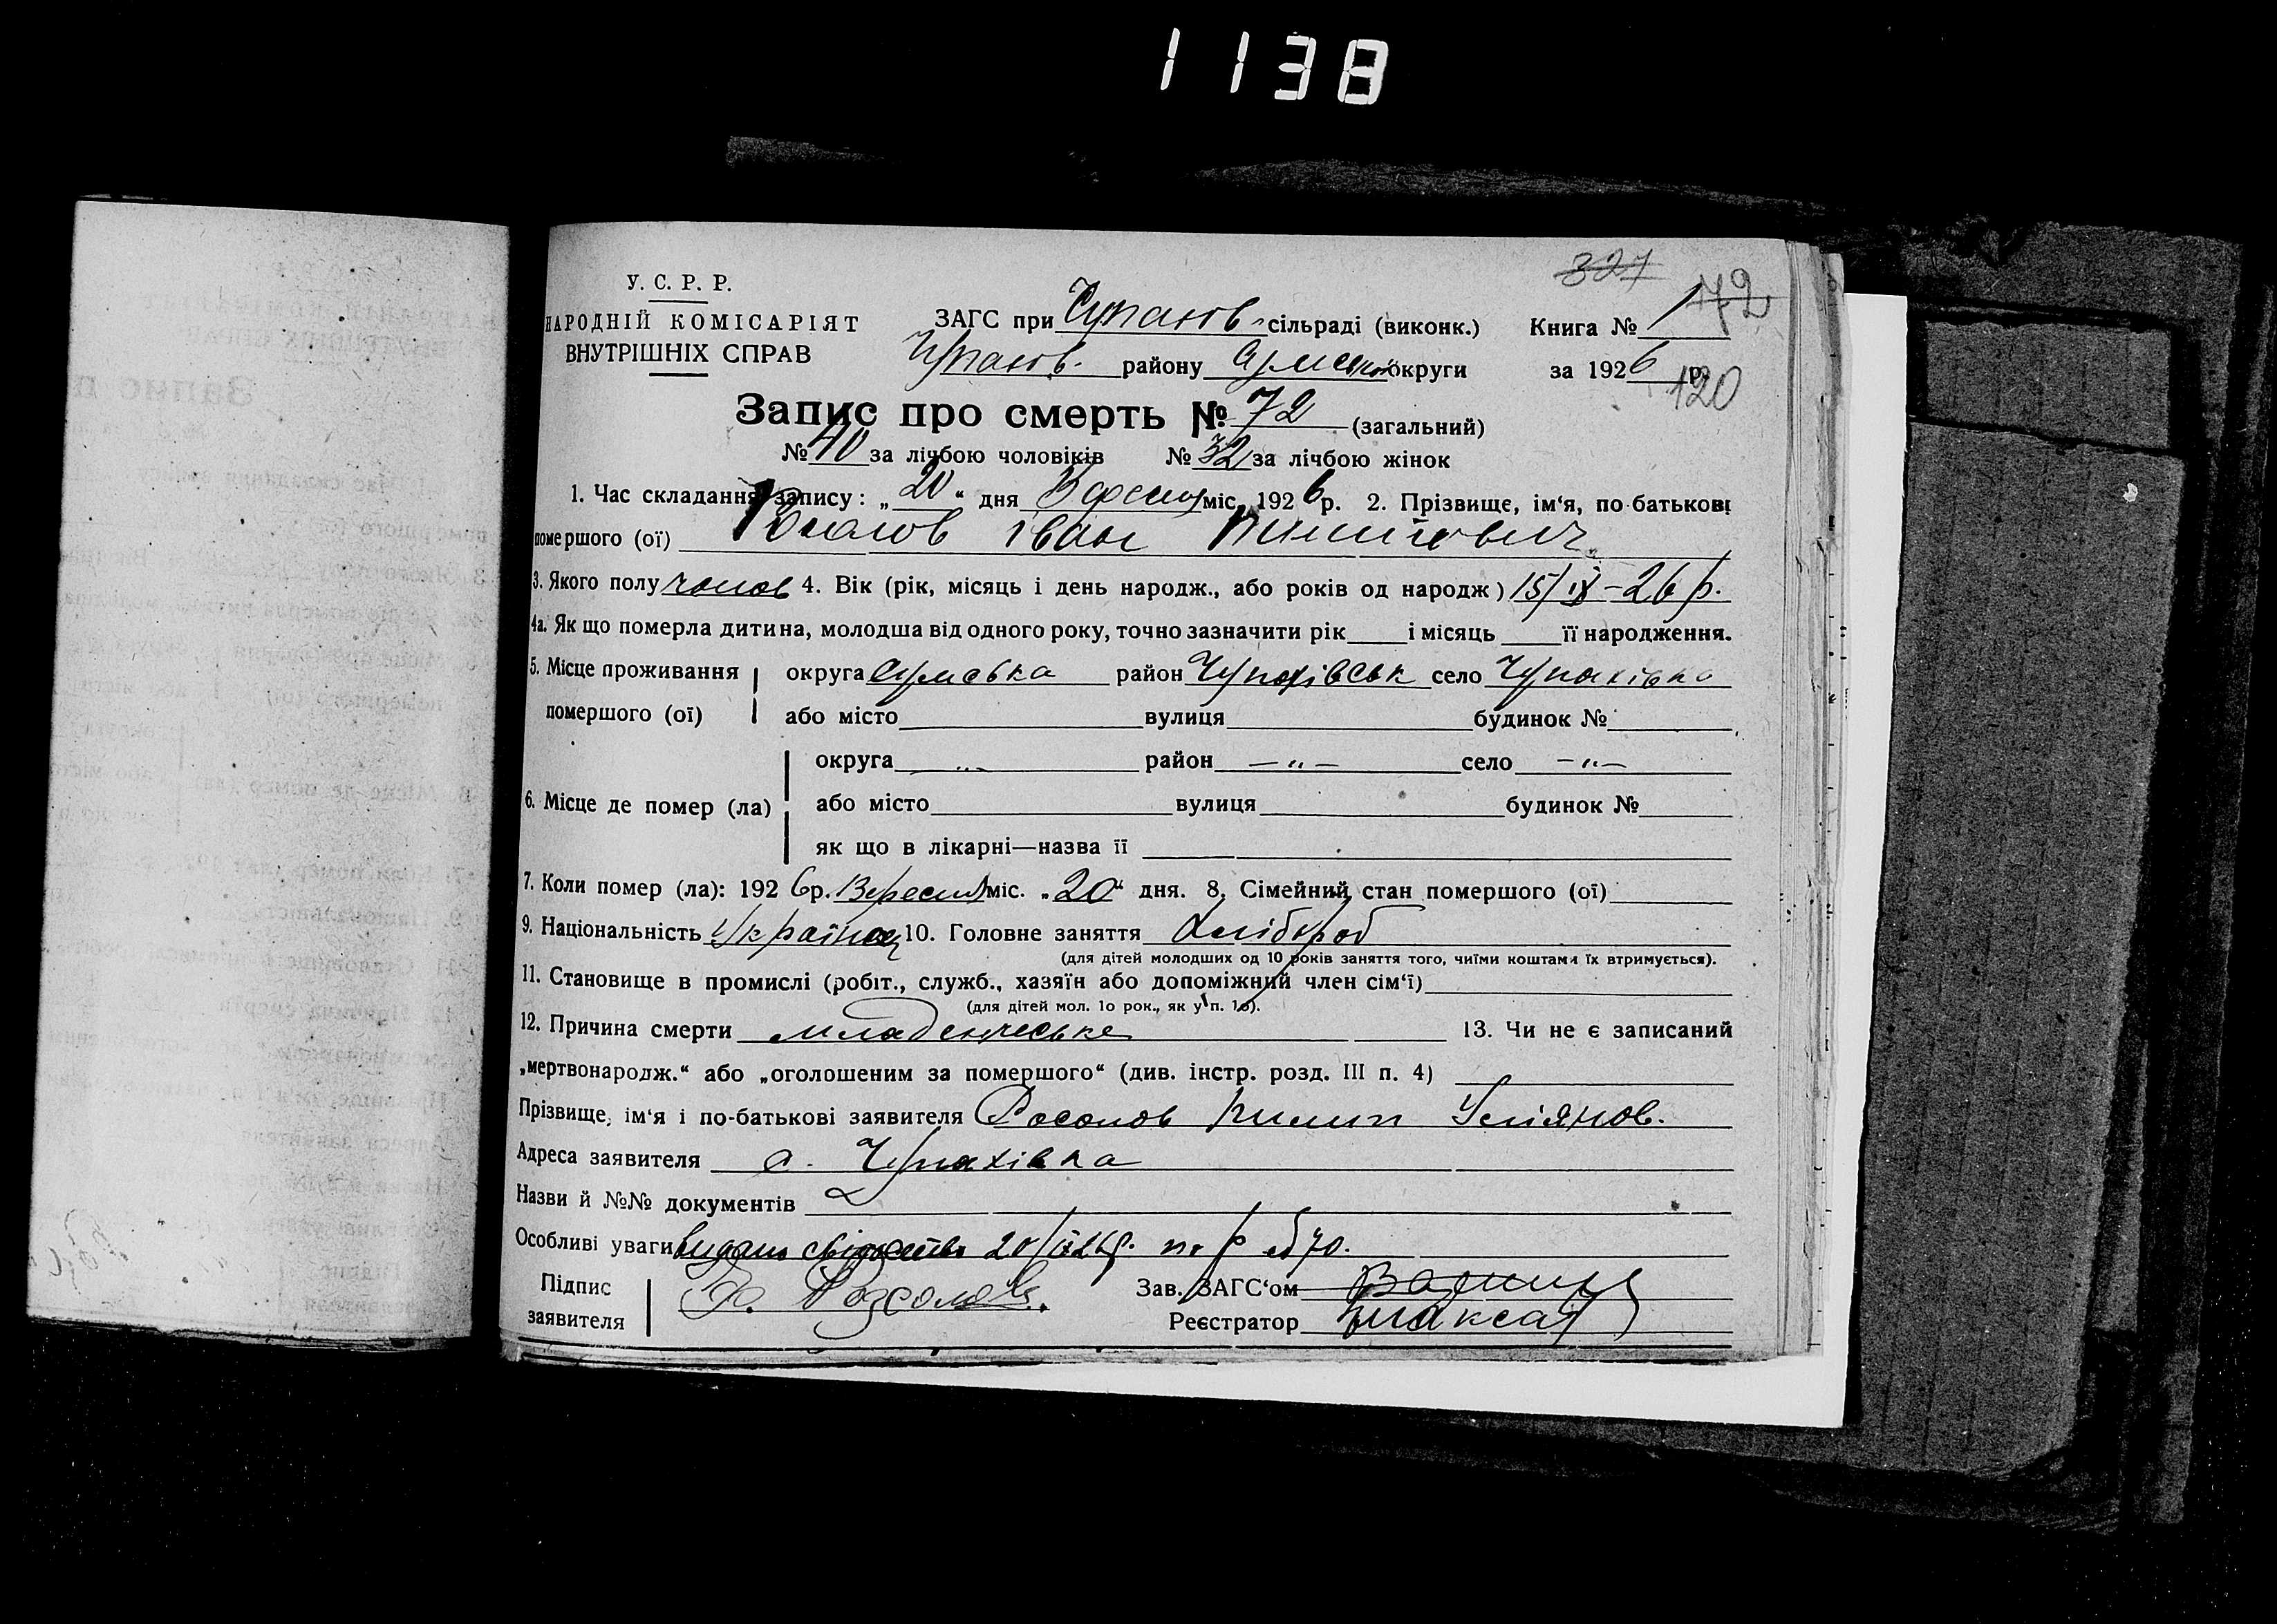 1138
327
172
У. С. Р. Р.
НАРОДНІЙ КОМІСАРІЯТ
ВНУТРІШНІХ СПРАВ
ЗАГС при Чупахів. сільраді (виконк.) Книга № 1
Чупахів. району Сумської округи за 1926 р.
120
Запис про смерть № 72 (загальний)
№ 40 за лічбою чоловіків № 32 за лічбою жінок
1. Час складання запису: „20“ дня Вересня міс. 1926 р. 2. Прізвище, ім‘я, по-батькові
помершого (ої) Іван Пилипович
3. Якого полу чолов 4. Вік (рік, місяць і день народж., або років од народж) 15/IX–26 р.
4а. Як що померла дитина, молодша від одного року, точно зазначити рік і місяць її народження.
5. Місце проживання помершого (ої) округа Сумська район Чупахівськ село Чупахівка
або місто вулиця будинок №
округа „ район – „ – село – „ –
6. Місце де помер (ла) або місто вулиця будинок №
як що в лікарні—назва її
7. Коли помер (ла): 1926 р. Вересня міс. „20“ дня. 8. Сімейний стан помершого (ої)
9. Національність Українец 10. Головне заняття Хлібороб
(для дітей молодших од 10 років заняття того, чиїми коштами їх втримується).
11. Становище в промислі (робіт., служб., хазяїн або допоміжний член сім‘ї)
(для дітей мол. 10 рок., як у п. 10).
12. Причина смерти младенческе 13. Чи не є записаний
„мертвонародж.“ або „оголошеним за помершого“ (див. інстр. розд. III п. 4)
Прізвище, ім‘я і по-батькові заявителя Росолов Пилип
Адреса заявителя с. Чупахівка
Назви й №№ документів
Особливі уваги видано свідоцтво 20/IX26р. по р № 70.
Підпис заявителя
Зав. ЗАГС‘ом
Реєстратор